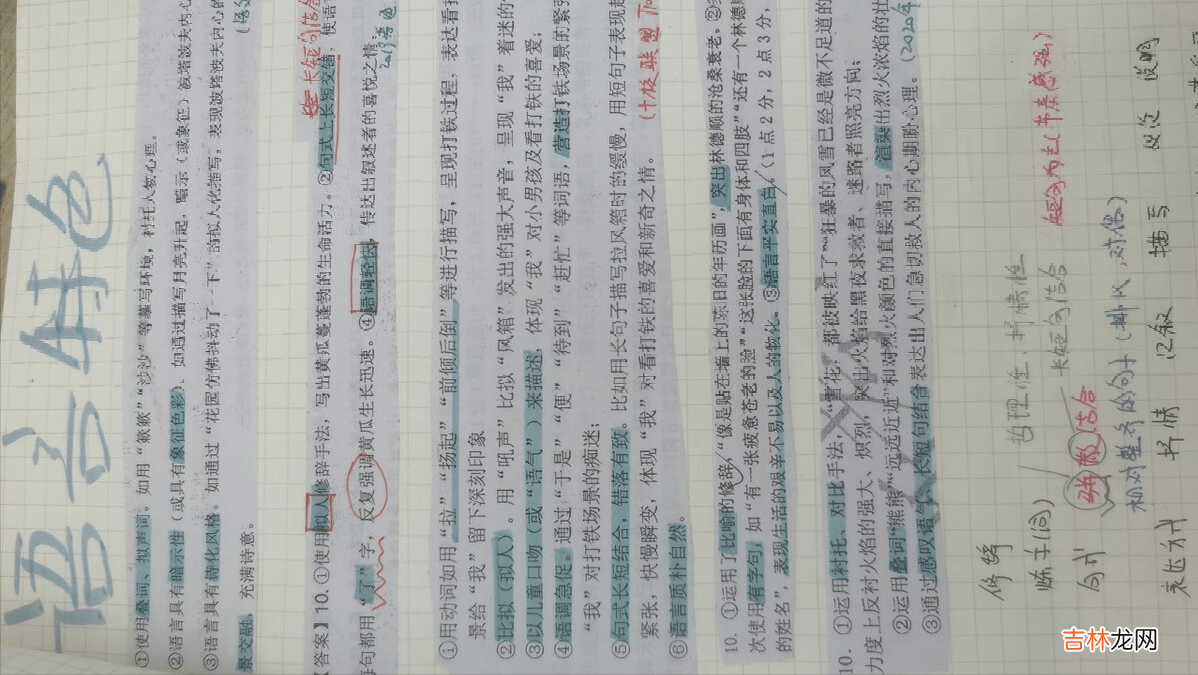 语言特色
①使用叠词、拟声词。如用“簌簌”“沙沙”等摹写环境，衬托人物心理。
②语言具有暗示性（或具有象征色彩）。如通过描写月亮升起，暗示（或象征）波塔波夫内心
③语言具有诗化风格。如通过“花园仿佛抖动了一下”的拟人化描写，表现波塔波夫内心的
景交融，充满诗意。
长短句结合
【答案】10. ①使用拟人修辞手法，写出黄瓜蔓蓬勃的生命活力。②句式上长短交错，使语言
每句都用“了”字，反复强调黄瓜生长迅速。④语调轻快，传达出叙述者的喜悦之情。
①用动词如用“拉”“扬起”“前倾后倒”等进行描写，呈现打铁过程，表达看打
景给“我”留下深刻印象
②比拟（拟人）。用“吼声”比拟“风箱”发出的强大声音，呈现“我”着迷的
③以儿童口吻（或“语气”）来描述，体现“我”对小男孩及看打铁的喜爱；
④语调急促。通过“于是”“便”“待到”“赶忙”等词语，营造打铁场景的紧张
“我”对打铁场景的痴迷；
⑤句式长短结合，错落有致。比如用长句子描写拉风箱时的缓慢，用短句子表现起
紧张，快慢瞬变，体现“我”对看打铁的喜爱和新奇之情。
（十校联盟
⑥语言质朴自然。
10. ①运用了比喻的修辞，“像是贴在墙上的陈旧的年历画”，突出林德顺的沧桑衰老。②
次使用有字句，如“有一张疲惫苍老的脸”“这张脸的下面有身体和四肢”“还有一个林德顺
的姓名”，表现生活的艰辛不易以及人的物化。③语言平实直白。（1点2分，2点3分，
10. ①运用衬托、对比手法，“雪花”都被映红了“狂暴的风雪已经是微不足道的
力度上反衬火焰的强大、炽烈，突出火焰给黑夜求救者、迷路者照亮方向；
②运用叠词“熊熊”“远远近近”和对烈火颜色的直接描写，渲染出烈火浓焰的壮
③通过感叹语气、长短句结合表达出人们急切救人的内心期盼心理。
修辞
哲理性、抒情性
炼字(词)
长短句结合
句式
整散结合
相对整齐的句子（排比，对偶）
表达方式 抒情 记叙 描写 议论 说明